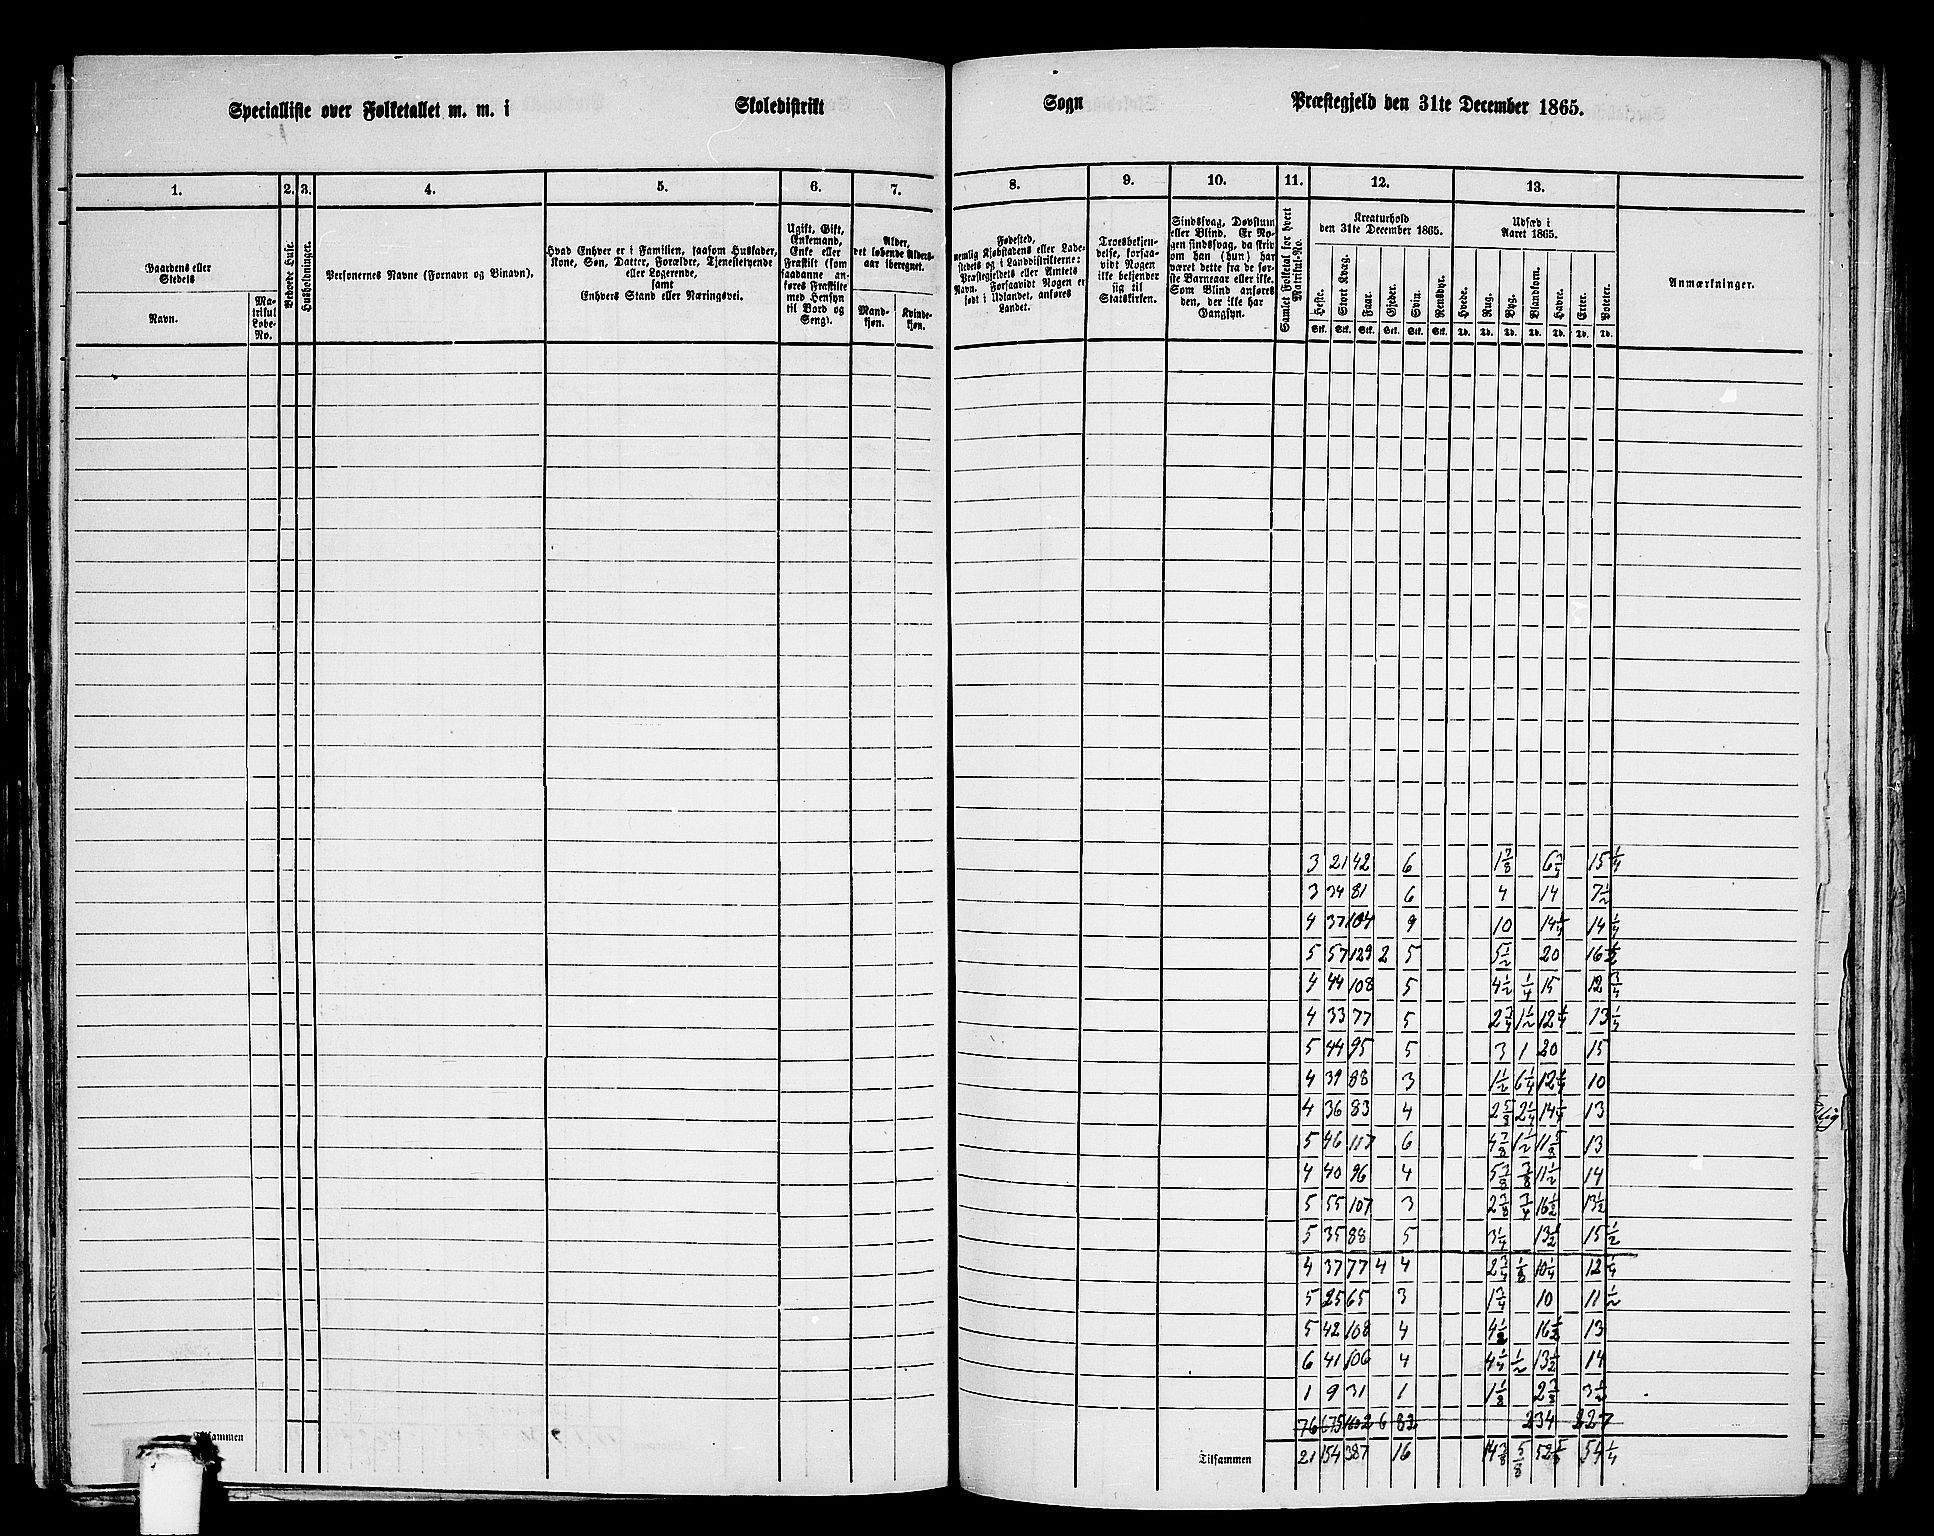 Specialliste over Folketallet m. m. i Skoledistrikt Sogn Præstegjeld den 31te December 1865.
1. 2. 3. 4. 5. 6. 7. 8. 9. 10. 11. 12. 13.
Gaardens eller Stedets
Navn.
Matrikul Løbe-No.
Beboede Huse.
Husholdninger.
Personernes Navne (Fornavn og Binavn).
Hvad Enhver er i Familien, saasom Husfader, Kone, Søn, Datter, Forældre, Tjenestetyende eller Logerende, samt Enhvers Stand eller Næringsvei.
Ugift, Gift, Enkemand, Enke eller Fraskilt (som saadanne anføres Fraskilte med Hensyn til Bord og Seng).
Alder, det løbende Alders-aar iberegnet.
Mand-kjøn. Kvinde-kjøn.
Fødested, nemlig Kjøbstadens eller Ladestedets og i Landdistrikterne: Præstegjeldets eller Amtets Navn. Forsaavidt Nogen er født i Udlandet, anføres Landet.
Troesbekjendelse, forsaavidt Nogen ikke bekjender sig til Statskirken.
Sindssvag, Døvstum eller Blind. Er Nogen sindssvag, da skriv om han (hun) har været dette fra de første Barneaar eller ikke. Som Blind anføres den, der ikke har Gangsyn.
Samlet Folketal for hvert Matrikul-No.
Kreaturhold den 31te December 1865.
Heste. Stort Kvæg. Faar. Gjeder. Svin. Rensdyr.
Stk. Stk. Stk. Stk. Stk. Stk.
Udsæd i Aaret 1865.
Hvede. Rug. Byg. Blandkorn. Havre. Erter. Poteter.
Td. Td. Td. Td. Td. Td. Td.
Anmærkninger.
3 21 42 6 1 7/8 15 1/4
3 34 81 6 4 14 7 1/2
4 37 104 9 10 14 1/4 14 1/4
5 57 129 2 5 5 1/2 20 16
4 44 108 5 4 1/2 1/4 15 12 3/4
4 33 77 5 2 3/4 1 1/2 12 1/4 13 1/4
5 44 95 5 3 1 20 15
4 39 88 3 1 1/2 6 1/4 12 1/4 10
4 36 83 4 2 5/8 2 1/4 14 1/4 13
5 46 117 6 4 7/8 1 1/2 11 5/8 13
4 40 96 4 5 3/8 3/8 11 1/2 14
5 55 107 3 2 3/8 3/4 16 1/2 13 1/2
5 35 88 5 3 1/4 13 1/2 15 1/2
4 37 77 4 4 2 3/4 1/8 10 1/4 12 1/4
5 25 65 3 1 3/4 10 11 1/2
5 42 108 4 4 1/2 16 1/2 13
6 41 106 4 4 1/4 1/2 13 1/2 14
1 9 31 1 1 1/8 3 1/2
76 675 1602 6 82 234 227
Tilsammen Tilsammen 21 154 387 16 14 3/8 5/8 52 5/8 54 1/4